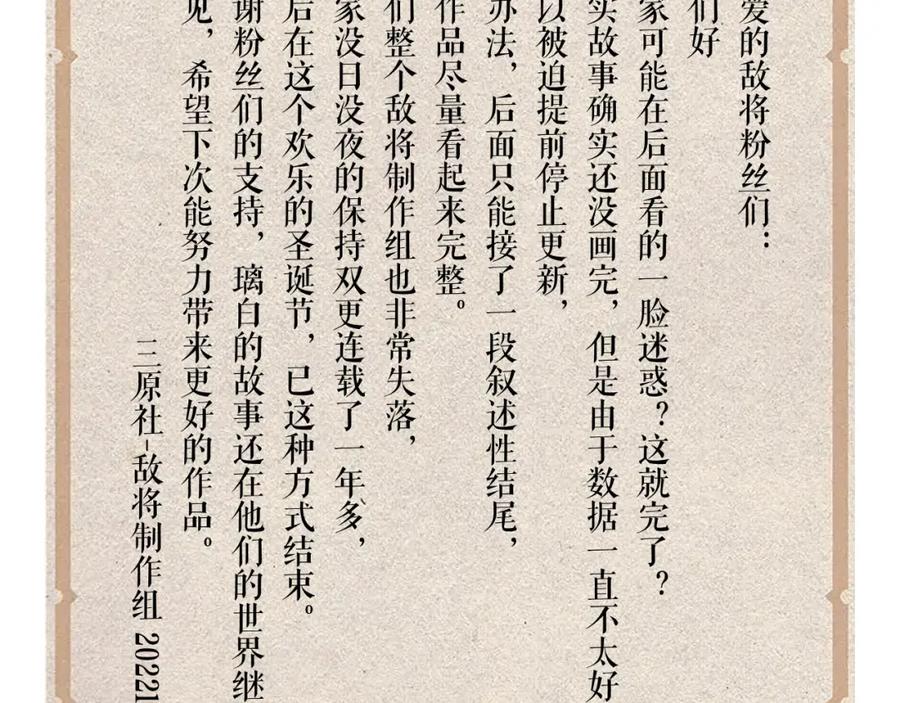 爱的敌将粉丝们：
们好
家可能在后面看的一脸迷惑？这就完了？
实故事确实还没画完，但是由于数据一直不太好
以被迫提前停止更新，
办法，后面只能接了一段叙述性结尾，
作品尽量看起来完整。
们整个敌将制作组也非常失落，
家没日没夜的保持双更连载了一年多，
后在这个欢乐的圣诞节，已这种方式结束。
谢粉丝们的支持，璃白的故事还在他们的世界继
见，希望下次能努力带来更好的作品。
三原社-敌将制作组 20221